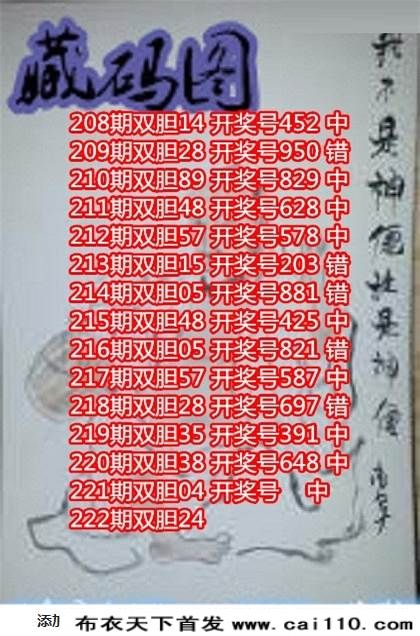 藏码图
208期双胆14 开奖号452 中
209期双胆28 开奖号950 错
210期双胆89 开奖号829 中
211期双胆48 开奖号628 中
212期双胆57 开奖号578 中
213期双胆15 开奖号203 错
214期双胆05 开奖号881 错
215期双胆48 开奖号425 中
216期双胆05 开奖号821 错
217期双胆57 开奖号587 中
218期双胆28 开奖号697 错
219期双胆35 开奖号391 中
220期双胆38 开奖号648 中
221期双胆04 开奖号 中
222期双胆24
不是神仙 是神仙
布衣天下首发 www.cai110.com